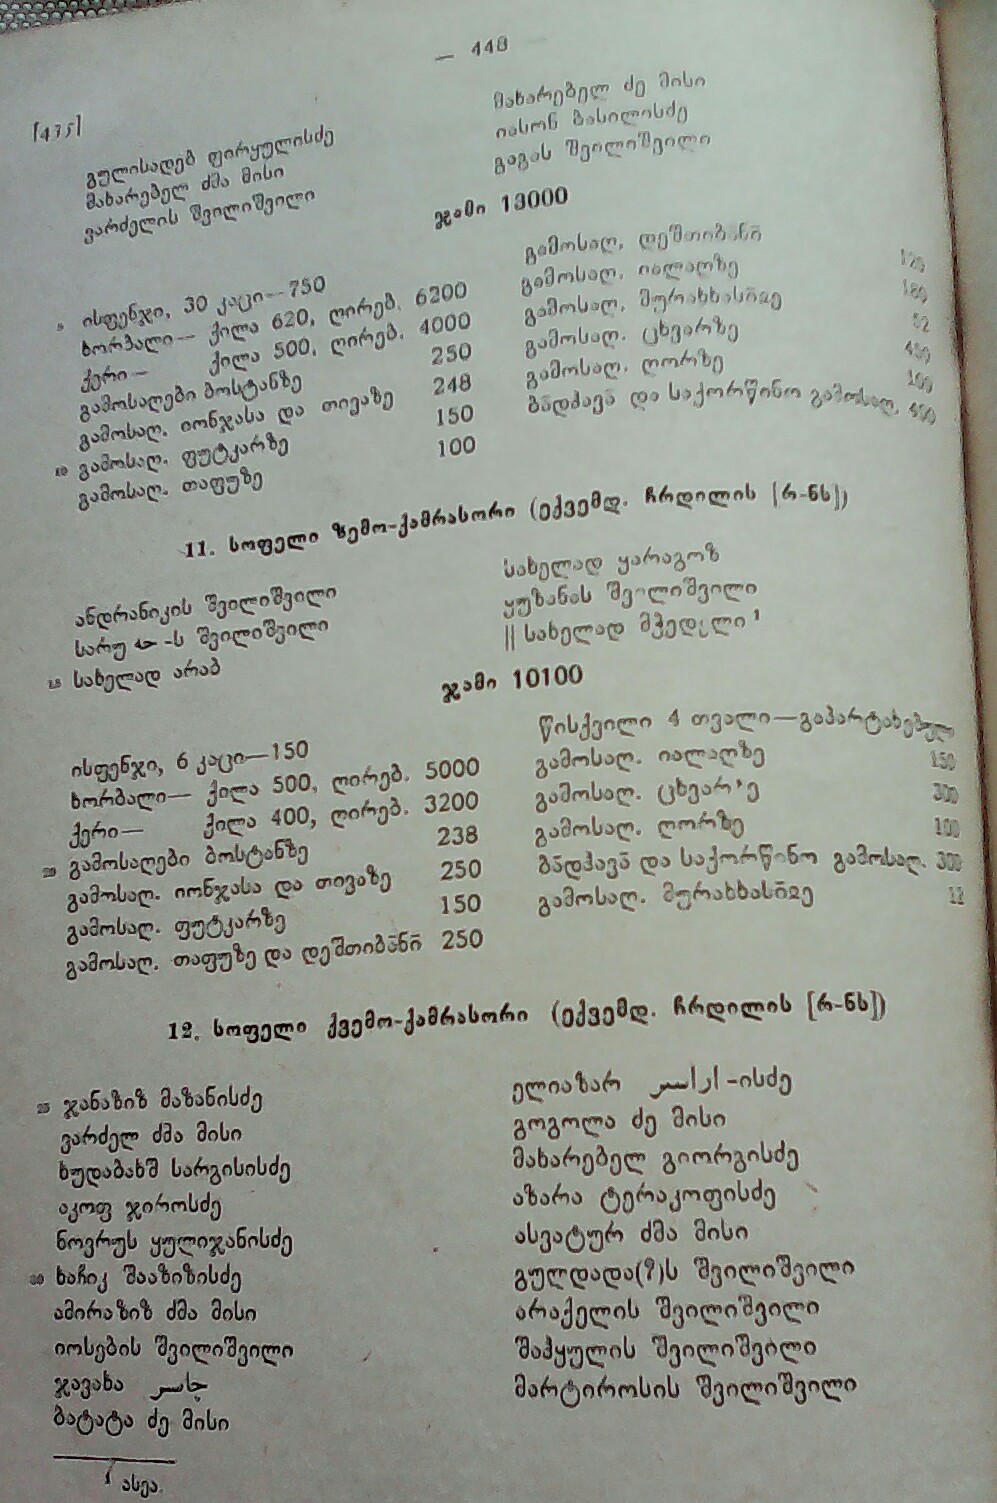 — 448 —
[435]
გულისადებ ფირყულისძე
მახარებელ ძმა მისი
ვარძელის შვილიშვილი
მახარებელ ძე მისი
იასონ ბასილისძე
გაგას შვილიშვილი
ჯამი 13000
ისფენჯი, 30 კაცი—750
ხორბალი— ქილა 620, ღირებ. 6200
ქერი— ქილა 500, ღირებ. 4000
გამოსაღები ბოსტანზე 250
გამოსაღ. იონჯასა და თივაზე 248
10 გამოსაღ. ფუტკარზე 150
გამოსაღ. თაფუზე 100
გამოსაღ. დეშთიბანი
გამოსაღ. იალაღზე 180
გამოსაღ. მურახხასიჲე 52
გამოსაღ. ცხვარზე 400
გამოსაღ. ღორზე 100
ბადჰავა და საქორწინო გამოსაღ. 400
11. სოფელი ზემო-ქამრასორი (ექვემდ. ჩრდილის [რ-ნს])
ანდრანიკის შვილიშვილი
სარუ -ს შვილიშვილი
15 სახელად არაბ
სახელად ყარაგოზ
ყუზანას შვილიშვილი
|| სახელად მჭედელი ¹
ჯამი 10100
ისფენჯი, 6 კაცი—150
ხორბალი— ქილა 500, ღირებ. 5000
ქერი— ქილა 400, ღირებ. 3200
20 გამოსაღები ბოსტანზე 238
გამოსაღ. იონჯასა და თივაზე 250
გამოსაღ. ფუტკარზე 150
გამოსაღ. თაფუზე და დეშთიბანი 250
წისქვილი 4 თვალი—გაპარტახებული
გამოსაღ. იალაღზე 150
გამოსაღ. ცხვარზე 300
გამოსაღ. ღორზე 100
ბადჰავა და საქორწინო გამოსაღ. 300
გამოსაღ. მურახხასიჲე 12
12. სოფელი ქვემო-ქამრასორი (ექვემდ. ჩრდილის [რ-ნს])
25 ჯანაზიზ მაზანისძე
ვარძელ ძმა მისი
ხუდაბახშ სარგისისძე
აკოფ ჯიროსძე
ნოვრუს ყულიჯანისძე
30 ხაჩიკ შააზიზისძე
ამირაზიზ ძმა მისი
იოსების შვილიშვილი
ჯავახა
ბატატა ძე მისი
ელიაზარ -ისძე
გოგოლა ძე მისი
მახარებელ გიორგისძე
აზარა ტერაკოფისძე
ასვატურ ძმა მისი
გულდადა(?)ს შვილიშვილი
არაქელის შვილიშვილი
შაჰყულის შვილიშვილი
მარტიროსის შვილიშვილი
¹ ასეა.